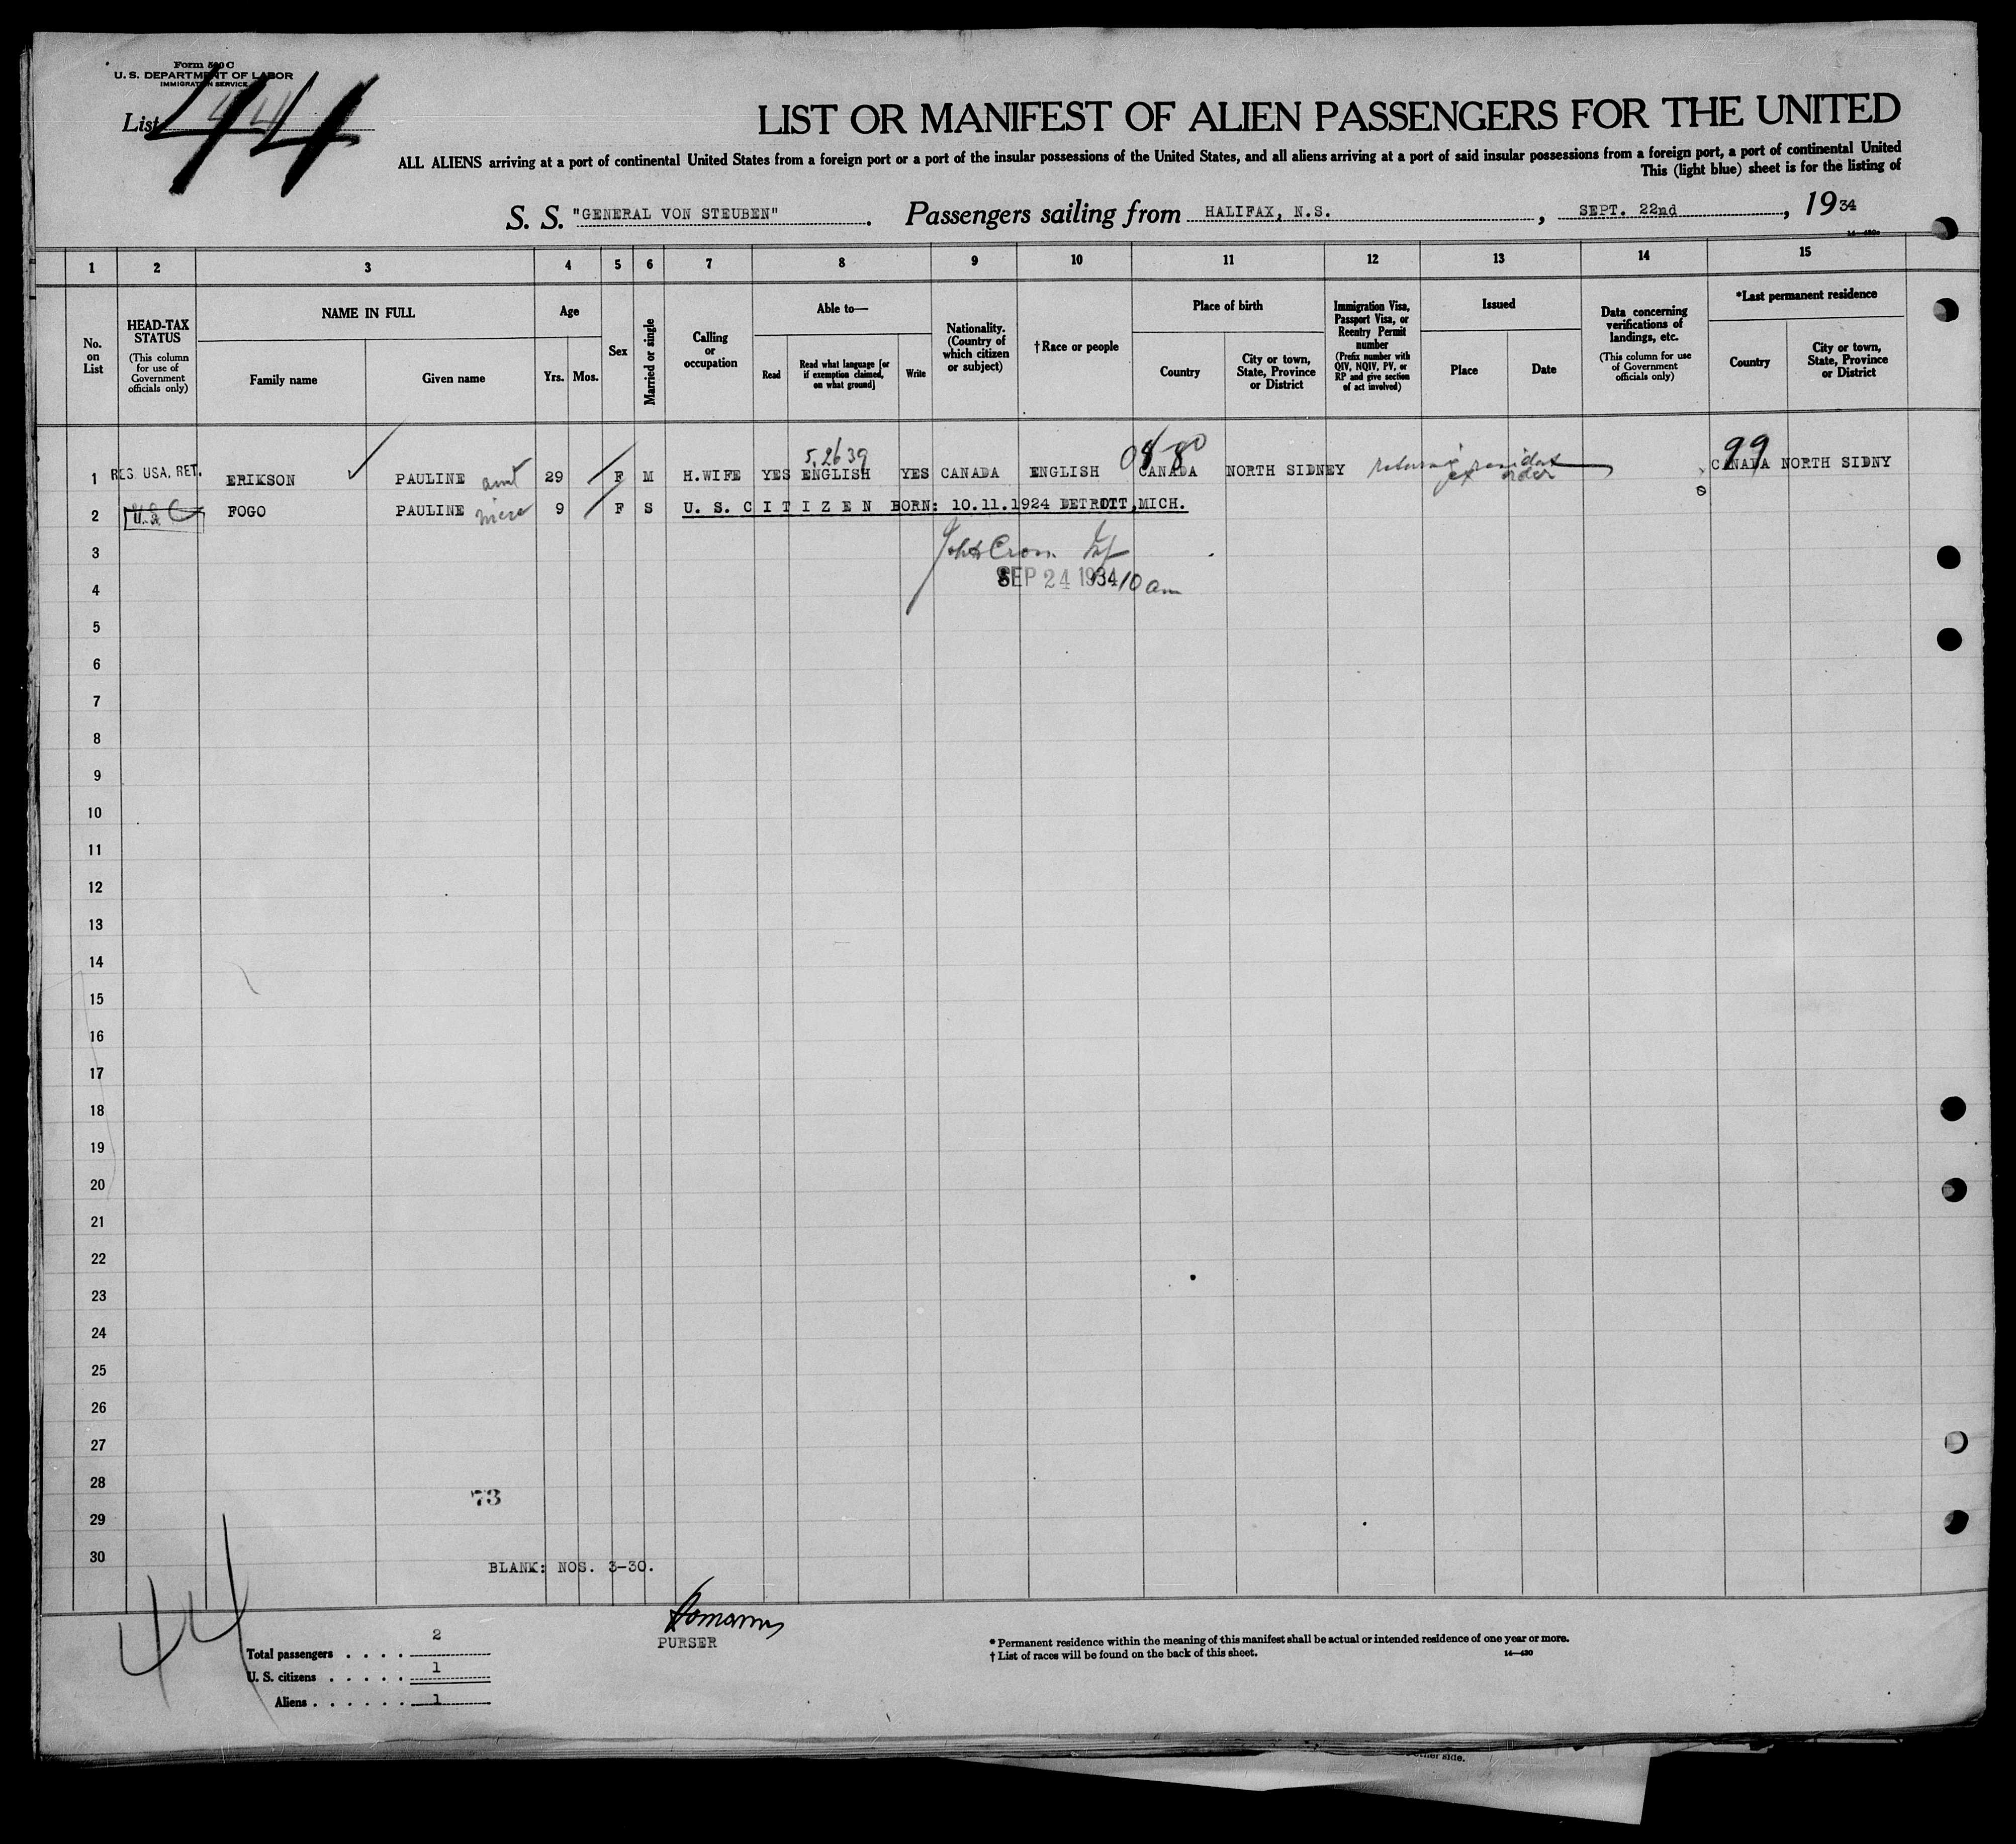 Form 500 C
U. S. DEPARTMENT OF LABOR
IMMIGRATION SERVICE
List 44
LIST OR MANIFEST OF ALIEN PASSENGERS FOR THE UNITED
ALL ALIENS arriving at a port of continental United States from a foreign port or a port of the insular possessions of the United States, and all aliens arriving at a port of said insular possessions from a foreign port, a port of continental United
This (light blue) sheet is for the listing of
S. S. "GENERAL VON STEUBEN". Passengers sailing from HALIFAX, N.S., SEPT. 22nd, 1934
1 2 3 4 5 6 7 8 9 10 11 12 13 14 15
No. on List
HEAD-TAX STATUS
(This column for use of Government officials only)
NAME IN FULL
Family name
Given name
Age
Yrs.
Mos.
Sex
Married or single
Calling or occupation
Able to—
Read
Read what language [or if exemption claimed, on what ground]
Write
Nationality. (Country of which citizen or subject)
†Race or people
Place of birth
Country
City or town, State, Province or District
Immigration Visa, Passport Visa, or Reentry Permit number
(Prefix number with QIV, NQIV, PV, or RP and give section of act involved)
Issued
Place
Date
Data concerning verifications of landings, etc.
(This column for use of Government officials only)
*Last permanent residence
Country
City or town, State, Province or District
5.2639
0880
99
1 RES USA. RET. ERIKSON PAULINE aunt 29 F M H.WIFE YES ENGLISH YES CANADA ENGLISH CANADA NORTH SIDNEY returning resident CANADA NORTH SIDNY
ex order
2 U.S. FOGO PAULINE niece 9 F S U. S. C I T I Z E N BORN: 10.11.1924 DETROIT, MICH.
3
SEP 24 1934 10 am
4
5
6
7
8
9
10
11
12
13
14
15
16
17
18
19
20
21
22
23
24
25
26
27
28
73
29
30
BLANK: NOS. 3-30.
44
PURSER
Total passengers . . . . 2
U. S. citizens . . . . . 1
Aliens . . . . . . 1
* Permanent residence within the meaning of this manifest shall be actual or intended residence of one year or more.
† List of races will be found on the back of this sheet.
14—430
other side.